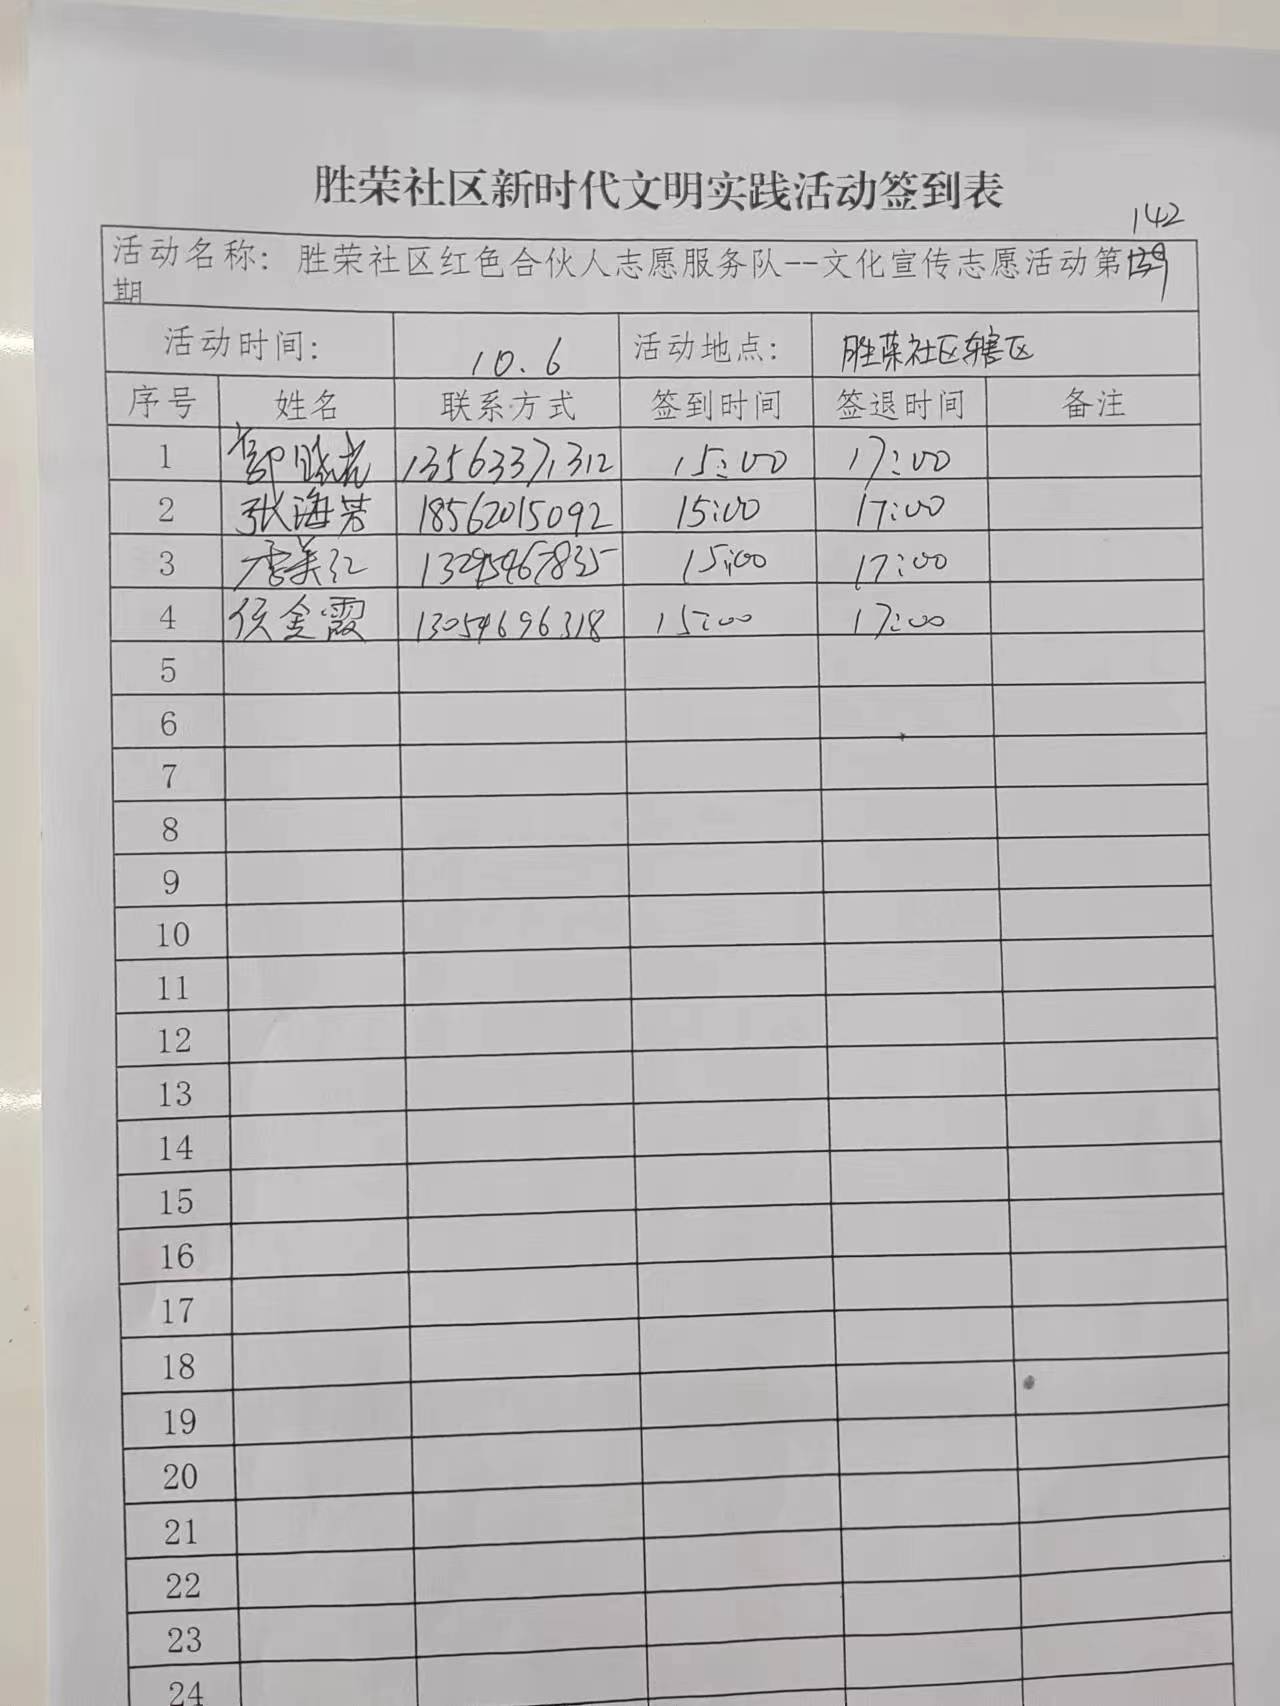 胜荣社区新时代文明实践活动签到表
142
活动名称：胜荣社区红色合伙人志愿服务队--文化宣传志愿活动第139
期
活动时间： 10.6 活动地点： 胜荣社区辖区
序号 姓名 联系方式 签到时间 签退时间 备注
1 郭晓光 13563371312 15:00 17:00
2 张海芳 18562015092 15:00 17:00
3 李美红 15:00 17:00
4 侯金霞 13054696318 15:00 17:00
5
6
7
8
9
10
11
12
13
14
15
16
17
18
19
20
21
22
23
24